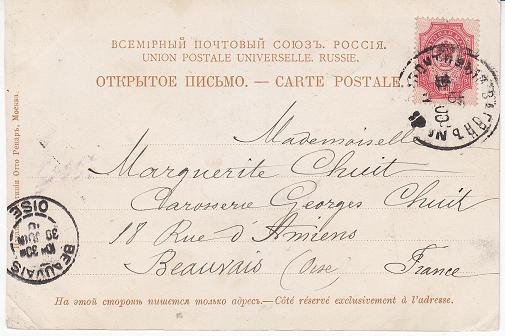 ВСЕМІРНЫЙ ПОЧТОВЫЙ СОЮЗЪ. РОССІЯ.
UNION POSTALE UNIVERSELLE. RUSSIE.
ОТКРЫТОЕ ПИСЬМО. — CARTE POSTALE.
ПОЧТОВЫЙ ВАГОНЪ №
Mademoiselle
Marguerite Chuit
Carosserie Georges Chuit
18 Rue d'Amiens
Beauvais (Oise) France
BEAUVAIS
30 JUIN
OISE
Отто Ренаръ, Москва.
На этой сторонѣ пишется только адресъ.—Côté réservé exclusivement à l'adresse.